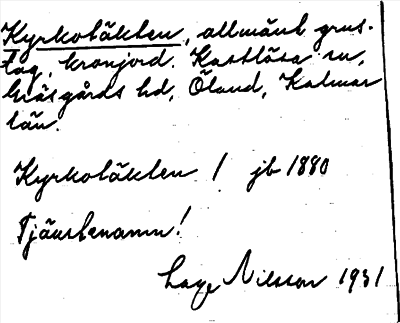 Kyrkotäkten, allmänt grus-
tag, kronjord. Kastlösa sn,
Gräsgårds hd, Öland, Kalmar
län.
Kyrkotäkten / jb 1880
Tjänstenamn!
Lage Nilsson 1931